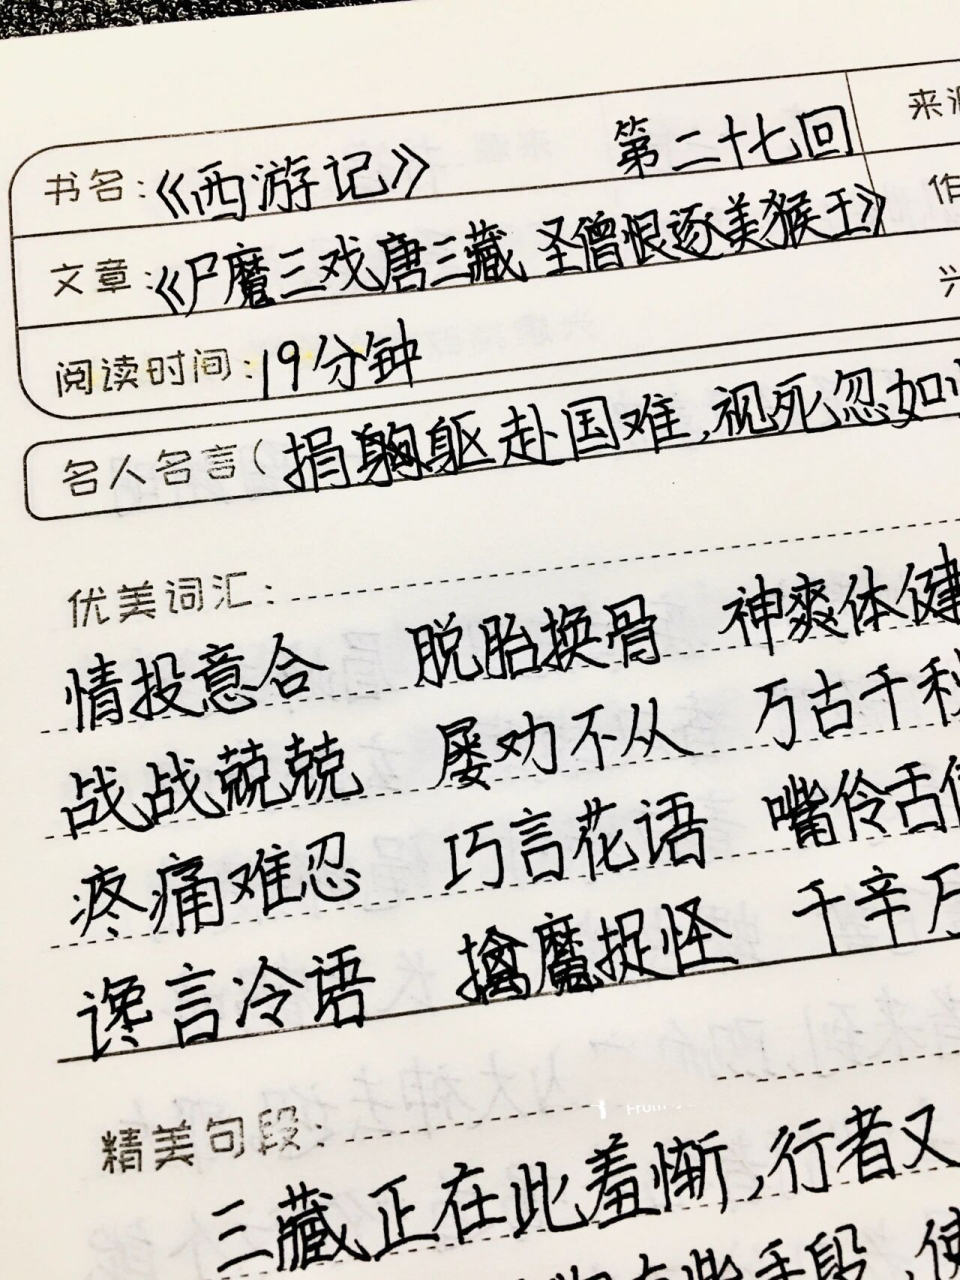 书名:《西游记》 第二十七回 来
文章:《尸魔三戏唐三藏 圣僧恨逐美猴王》 作
阅读时间:19分钟
名人名言(捐躯赴国难,视死忽如
优美词汇:
情投意合 脱胎换骨 神爽体健
战战兢兢 屡劝不从 万古千秋
疼痛难忍 巧言花语 嘴伶舌
谗言冷语 擒魔捉怪 千辛万
精美句段:
三藏正在此羞惭,行者又
些手段,使